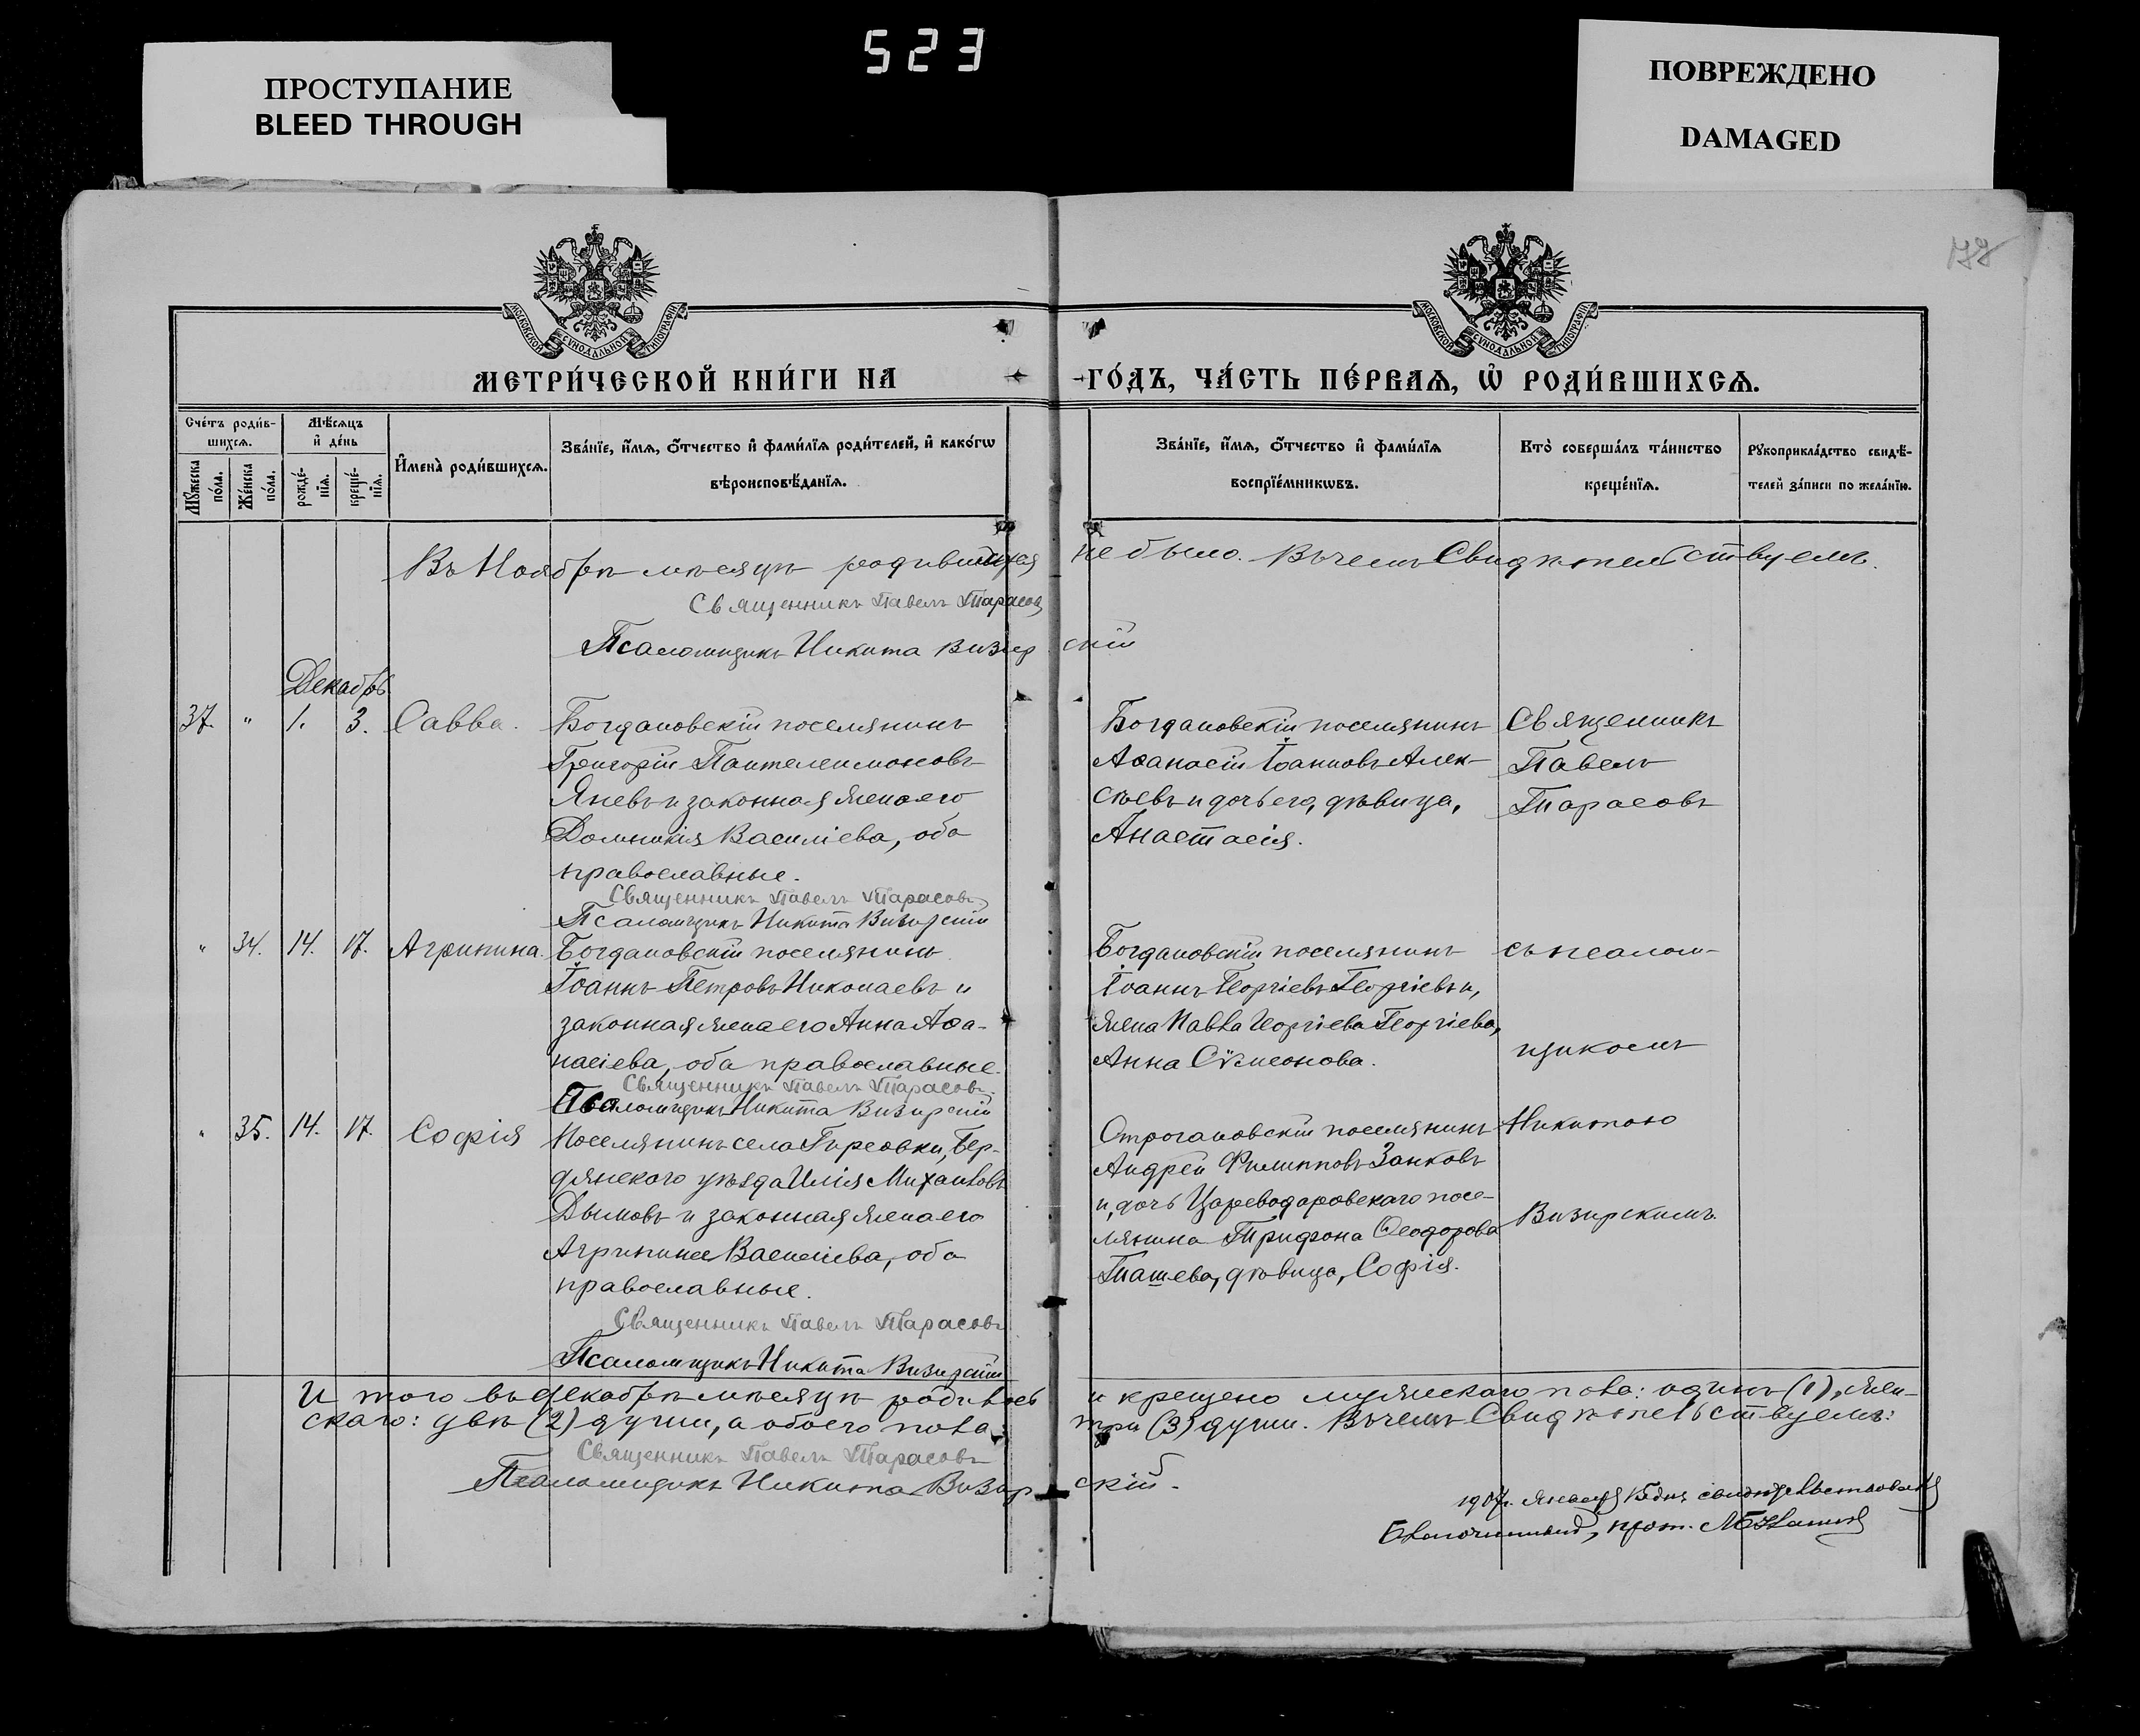 ПРОСТУПАНИЕ
BLEED THROUGH
523
ПОВРЕЖДЕНО
DAMAGED
178
МОСКОВСКОЙ СѴНОДАЛЬНОЙ ТИПОГРАФІИ
МОСКОВСКОЙ СѴНОДАЛЬНОЙ ТИПОГРАФІИ
МЕТРИ́ЧЕСКОЙ КНИ́ГИ НА
ГО́ДЪ, ЧА́СТЬ ПЕ́РВАѦ, Ѡ҆ РОДИ́ВШИХСѦ.
Сче́тъ роди́в-
шихсѧ.
Мѣ́сѧцъ
и҆ де́нь
Мꙋ́жеска
по́ла.
Же́нска
по́ла.
рожде́-
нїѧ.
креще́-
нїѧ.
И҆мена̀ роди́вшихсѧ.
Зва́нїе, и҆́мѧ, ѻ҆́тчество и҆ фами́лїѧ роди́телей, и҆ како́гѡ
вѣроисповѣ́данїѧ.
Зва́нїе, и҆́мѧ, ѻ҆́тчество и҆ фами́лїѧ
воспрїе́мникѡвъ.
Кто̀ соверша́лъ та́инство
креще́нїѧ.
Рꙋкоприкла́дство свидѣ́-
телей за́писи по жела́нїю.
Въ Ноябрѣ мѣсяцѣ родившихся не было. Въ чемъ Свидѣтельствуемъ.
Священникъ Павелъ Тарасовъ
Псаломщикъ Никита Визирскій
Декабрь
37. " 1. 3. Савва.
Богдановскій поселянинъ
Григорій Пантелеимоновъ
Яневъ и законная жена его
Домникія Василіева, оба
православные.
Священникъ Павелъ Тарасовъ
Псаломщикъ Никита Визирскій
Богдановскій поселянинъ
Аѳанасій Іоанновъ Алек-
сѣевъ и дочь его, дѣвица,
Анастасія.
Священникъ
Павелъ
Тарасовъ
" 34. 14. 17. Агрипина.
Богдановскій поселянинъ
Іоаннъ Петровъ Николаевъ и
законная жена его Анна Аѳа-
насіева, оба православные.
Священникъ Павелъ Тарасовъ
Псаломщикъ Никита Визирскій
Богдановскій поселянинъ
Іоаннъ Георгіевъ Георгіевъ и,
жена Павла Георгіева Георгіева,
Анна Сѵмеонова.
съ псалом-
щикомъ
" 35. 14. 17. Софія
Поселянинъ села Гирсовки, Бер-
дянского уѣзда Илія Михаиловъ
Дымовъ и законная жена его
Агрипина Василіева, оба
православные.
Священникъ Павелъ Тарасовъ
Псаломщикъ Никита Визирскій
Строгановскій поселянинъ
Андрей Филипповъ Занковъ
и, дочь Цареводаровскаго посе-
лянина Трифона Ѳеодорова
Ташева, дѣвица, Софія.
Никитою
Визирскимъ.
И того въ декабрѣ мѣсяцѣ родилось и крещено мужескаго пола: одинъ (1), жен-
скаго: двѣ (2) души, а обоего пола: три (3) души. Въ чемъ Свидѣтельствуемъ:
Священникъ Павелъ Тарасовъ
Псаломщикъ Никита Визирскій.
1907 г. Января дня свидѣтельствовалъ
Благочинный, прот.